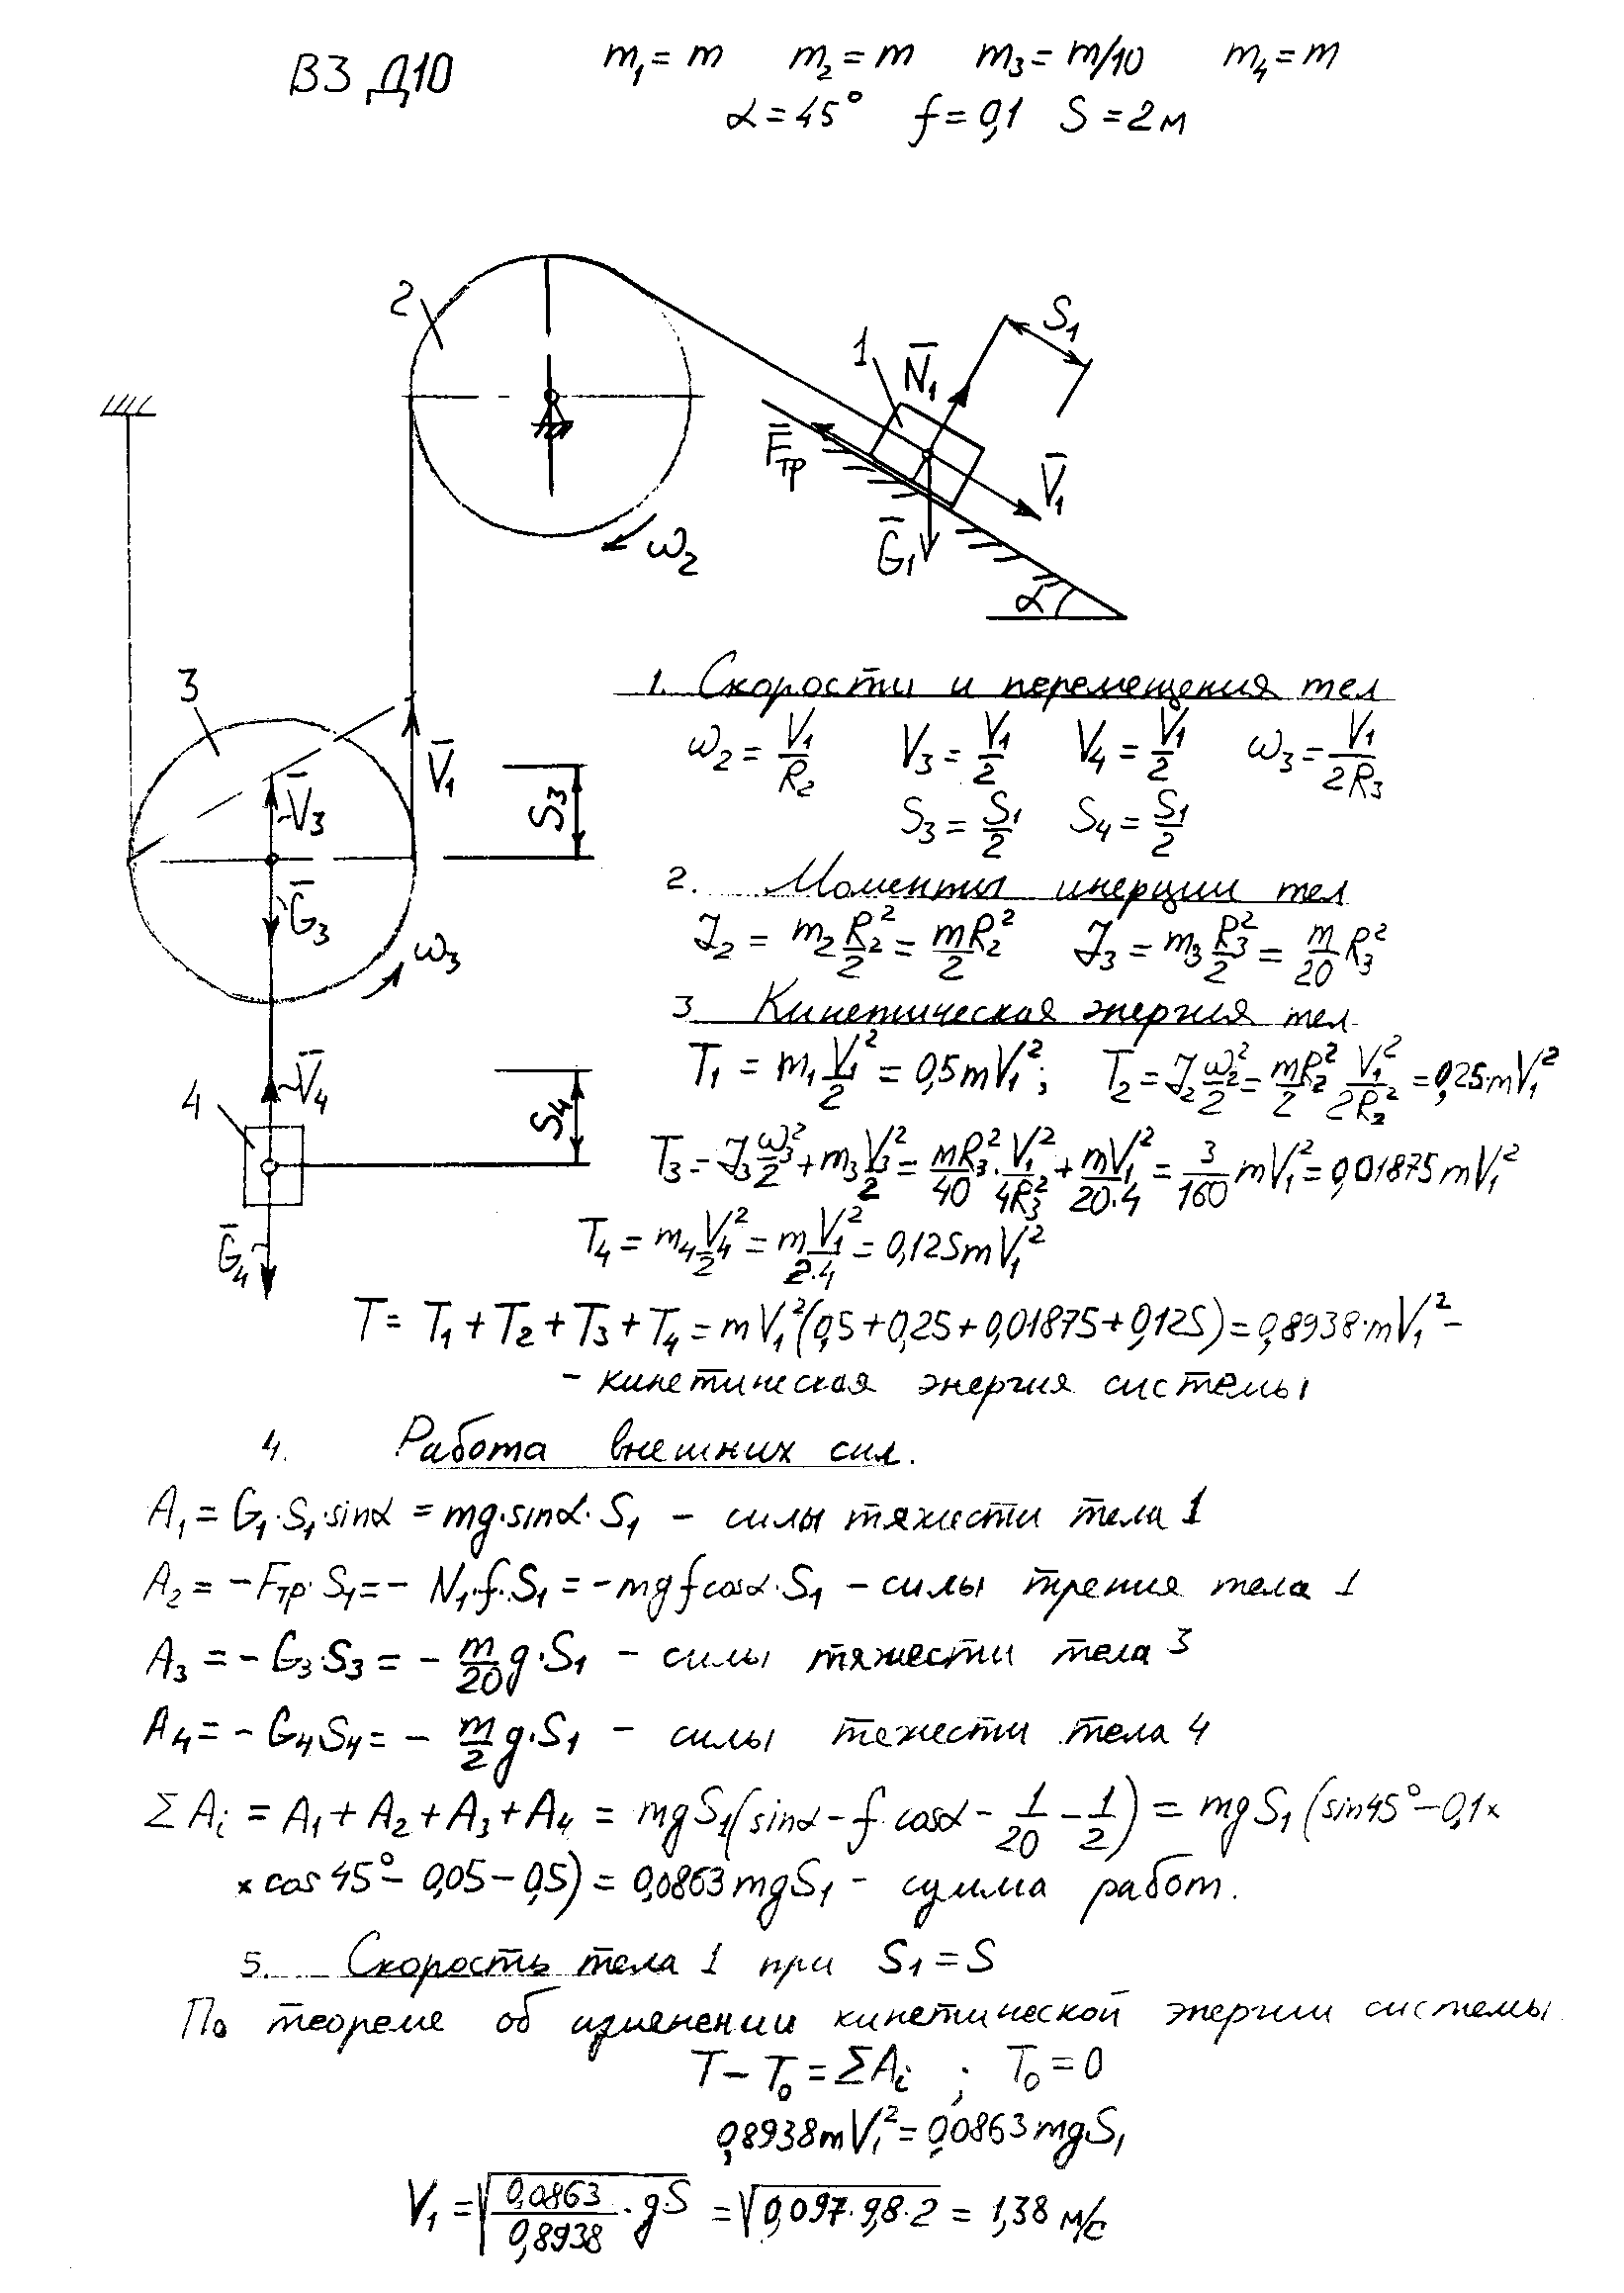 В3 Д10 m₁ = m m₂ = m m₃ = m/10 m₄ = m
α = 45° f = 0,1 S = 2м
2
1
N̄₁
S₁
F̄тр
V̄₁
Ḡ₁
ω₂
α
3
V̄₁
V̄₃
S₃
Ḡ₃
ω₃
V̄₄
4
S₄
Ḡ₄
1. Скорости и перемещения тел
ω₂ = V₁/R₂ V₃ = V₁/2 V₄ = V₁/2 ω₃ = V₁/2R₃
S₃ = S₁/2 S₄ = S₁/2
2. Моменты инерции тел
J₂ = m₂ R₂²/2 = mR₂²/2 J₃ = m₃ R₃²/2 = m/20 R₃²
3 Кинетическая энергия тел
T₁ = m₁ V₁²/2 = 0,5mV₁²; T₂ = J₂ ω₂²/2 = mR₂²/2 V₁²/2R₂² = 0,25·mV₁²
T₃ = J₃ ω₃²/2 + m₃ V₃²/2 = mR₃²/40 · V₁²/4R₃² + mV₁²/20·4 = 3/160 mV₁² = 0,01875mV₁²
T₄ = m₄ V₄²/2 = mV₁²/2·4 = 0,125mV₁²
T = T₁ + T₂ + T₃ + T₄ = mV₁²(0,5 + 0,25 + 0,01875 + 0,125) = 0,8938·mV₁² –
– кинетическая энергия системы
4. Работа внешних сил.
A₁ = G₁·S₁·sinα = mg·sinα·S₁ – силы тяжести тела 1
A₂ = –Fтр·S₁ = – N₁·f·S₁ = –mgfcosα·S₁ – силы трения тела 1
A₃ = – G₃·S₃ = – m/20 g·S₁ – силы тяжести тела 3
A₄ = – G₄S₄ = – m/2 g·S₁ – силы тежести тела 4
ΣAᵢ = A₁ + A₂ + A₃ + A₄ = mgS₁(sinα – f·cosα – 1/20 – 1/2) = mgS₁(sin45° – 0,1×
×cos45° – 0,05 – 0,5) = 0,0863mgS₁ – сумма работ.
5. Скорость тела 1 при S₁ = S
По теореме об изменении кинетической энергии системы
T – T₀ = ΣAᵢ ; T₀ = 0
0,8938mV₁² = 0,0863mgS₁
V₁ = √(0,0863/0,8938 · gS) = √(0,097·9,8·2) = 1,38 м/с